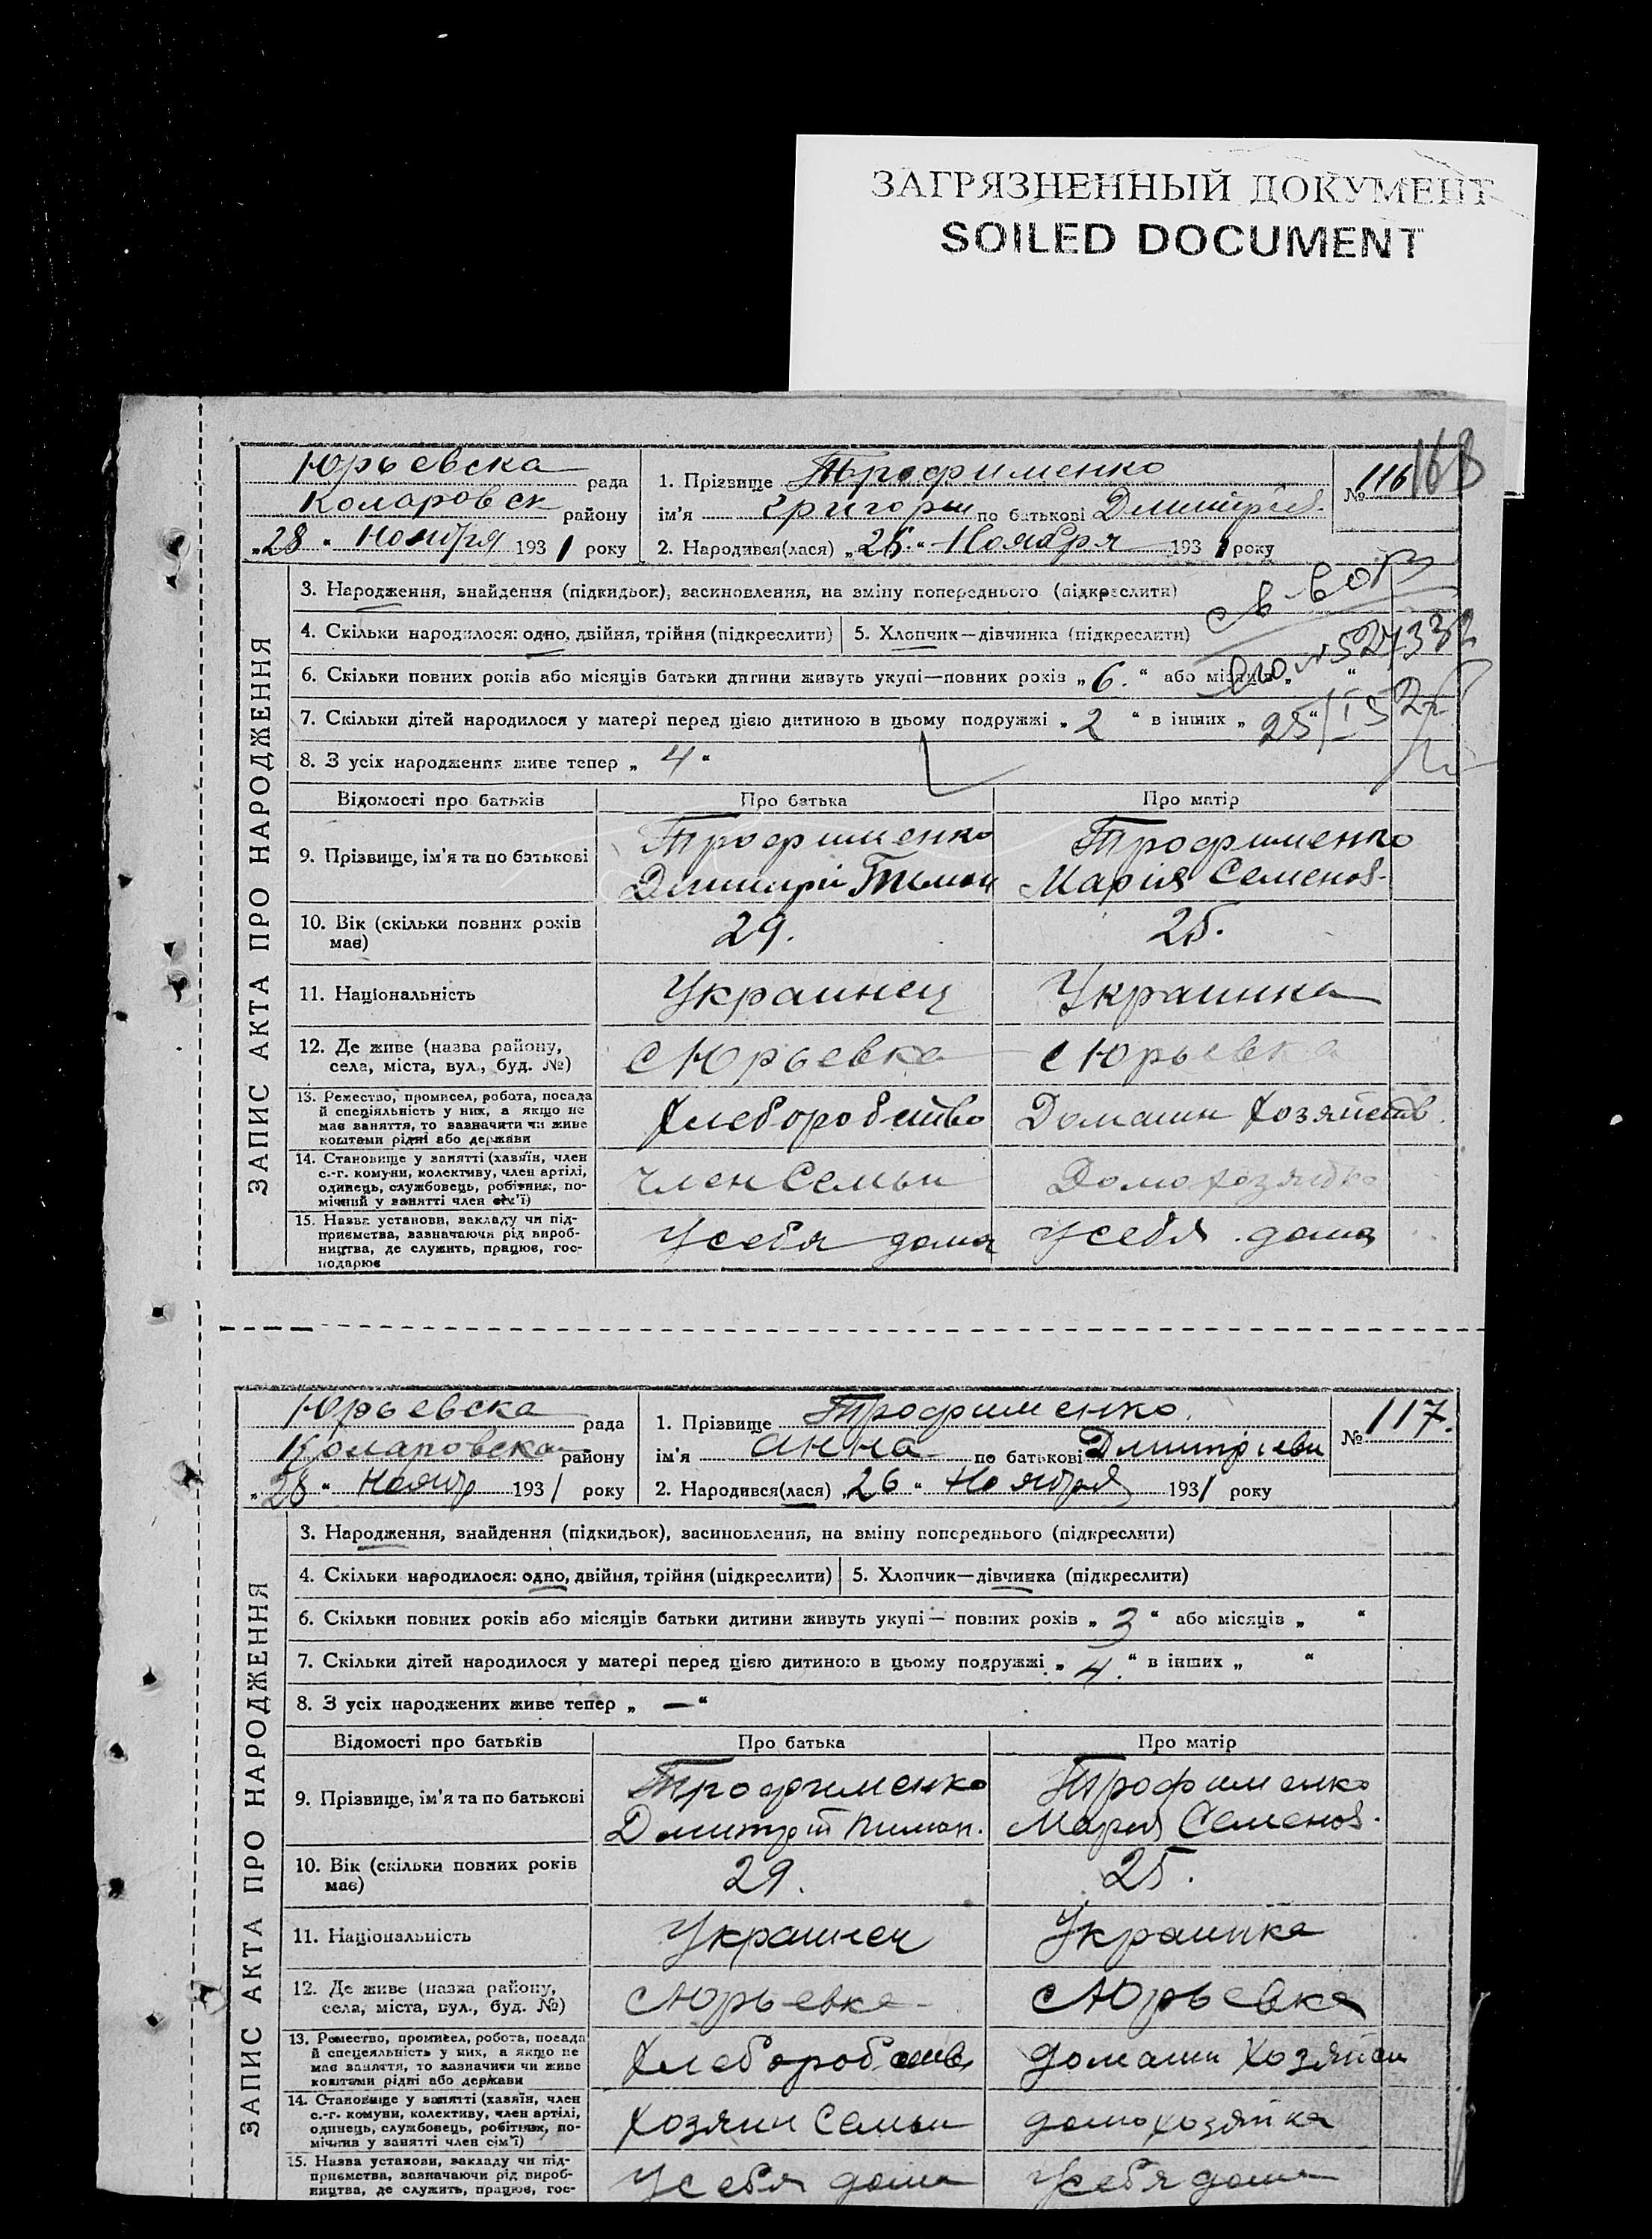 ЗАГРЯЗНЕННЫЙ ДОКУМЕНТ
SOILED DOCUMENT
168
Юрьевска рада
Коларовск району
„28“ Ноября 1931 року
1. Прізвище Трофименко
ім'я Григорий по батькові Дмитріев.
2. Народився(лася) „26“ Ноября 1931 року
№ 116
ЗАПИС АКТА ПРО НАРОДЖЕННЯ
3. Народження, знайдення (підкидьок), васиновлення, на зміну попереднього (підкреслити)
4. Скільки народилося: одно, двійня, трійня (підкреслити)
5. Хлопчик—дівчинка (підкреслити)
6. Скільки повних років або місяців батьки дитини живуть укупі—повних років „6.“ або місяців „ “
7. Скільки дітей народилося у матері перед цією дитиною в цьому подружжі „2“ в інших „ “
8. З усіх народження живе тепер „4“
Відомості про батьків
Про батька
Про матір
9. Прізвище, ім'я та по батькові
Трофименко
Дмитрій Тимон
Трофименко
Мария Семенов.
10. Вік (скільки повних років
має)
29.
25.
11. Національність
Украинец
Украинка
12. Де живе (назва району,
села, міста, вул., буд. №)
С Юрьевка
С Юрьевка
13. Ремество, промисел, робота, посада
й спеціяльність у них, а якщо не
має заняття, то зазначити чи живе
коштами рідні або держави
Хлеборобство
Домашн Хозяйств.
14. Становище у занятті (хазяїн, член
с.-г. комуни, колективу, член артілі,
одинець, службовець, робітник, по-
мічний у занятті член сім'ї)
член Семьи
Домохозяйка
15. Назва установи, закладу чи під-
приємства, зазначаючи рід вироб-
ництва, де служить, працює, гос-
подарює
У себя дома
У себя дома
Юрьевска рада
Коларовска району
„28“ Ноябр 1931 року
1. Прізвище Трофименко.
ім'я Анна по батькові Дмитріевн
2. Народився(лася) „26“ Ноября 1931 року
№ 117.
ЗАПИС АКТА ПРО НАРОДЖЕННЯ
3. Народження, знайдення (підкидьок), васиновлення, на зміну попереднього (підкреслити)
4. Скільки народилося: одно, двійня, трійня (підкреслити)
5. Хлопчик—дівчинка (підкреслити)
6. Скільки повних років або місяців батьки дитини живуть укупі — повних років „3“ або місяців „ “
7. Скільки дітей народилося у матері перед цією дитиною в цьому подружжі „4.“ в інших „ “
8. З усіх народжених живе тепер „—“
Відомості про батьків
Про батька
Про матір
9. Прізвище, ім'я та по батькові
Трофименко
Дмитрій Тимон.
Трофименко
Мария Семенов.
10. Вік (скільки повних років
має)
29.
25.
11. Національність
Украинец
Украинка
12. Де живе (назва району,
села, міста, вул., буд. №)
С Юрьевка
С Юрьевка
13. Ремество, промисел, робота, посада
й спецеяльність у них, а якщо не
має заняття, то зазначити чи живе
коштами рідні або держави
Хлеборобств
домашн Хозяйств
14. Становище у занятті (хазяїн, член
с.-г. комуни, колективу, член артілі,
одинець, службовець, робітник, по-
мічнив у занятті член сім'ї)
Хозяин Семьи
домохозяйка
15. Назва установи, закладу чи під-
приємства, зазначаючи рід вироб-
ництва, де служить, працює, гос-
У себя дома
У себя дома